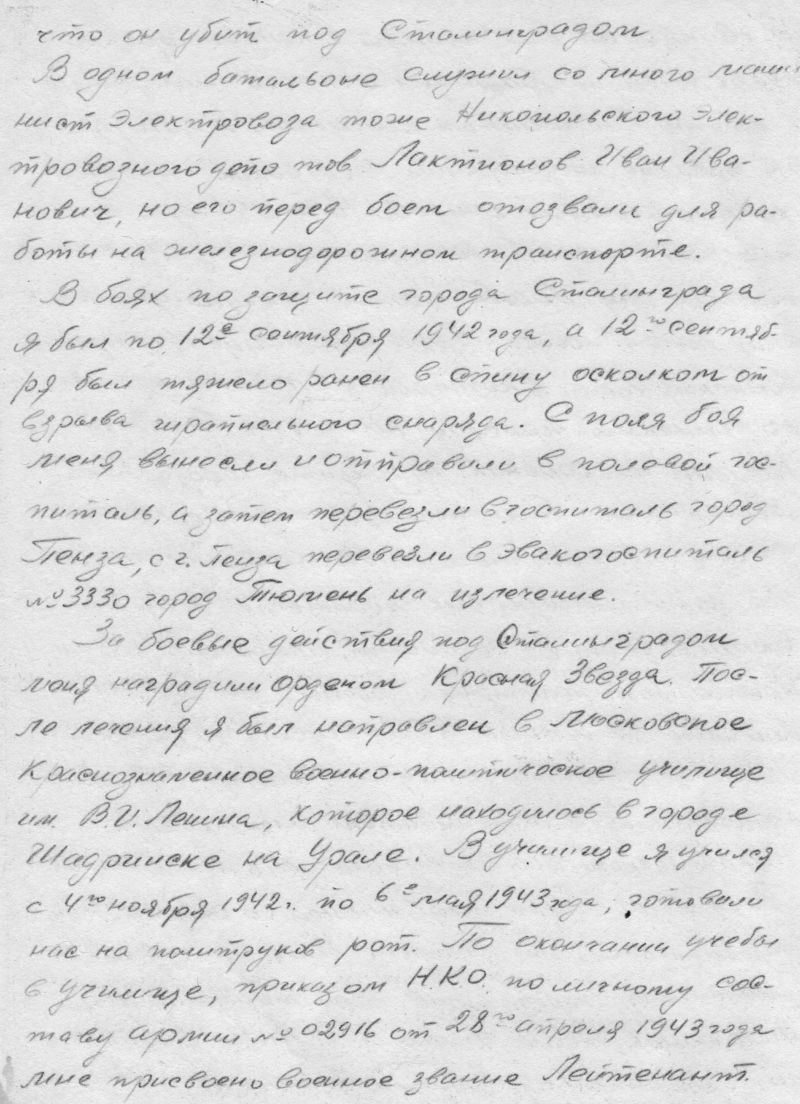 что он убит под Сталинградом
В одном батальоне служил со много маши
нист электровоза тоже Никопольского элек-
тровозного депо тов. Лактионов Иван Ива-
нович, но его перед боем отозвали для ра-
боты на железнодорожном транспорте.
В боях по защите города Сталинграда
я был по 12е сентября 1942 года, а 12го сентяб-
ря был тяжело ранен в спину осколком от
взрыва шрапнельного снаряда. С поля боя
меня вынесли и отправили в половой гос-
питаль, а затем перевезли в госпиталь город
Пенза, с г. Пенза перевезли в эвакогоспиталь
№ 3330 город Тюмень на излечение.
За боевые действия под Сталинградом
меня наградили орденом Красная Звезда. Пос-
ле лечения я был направлен в Московское
Краснознаменное военно-политическое училище
им. В.И. Ленина, которое находилось в городе
Шадринске на Урале. В училище я учился
с 4го ноября 1942г. по 6е мая 1943 года, готовили
нас на политруков рот. По окончании учебы
в училище, приказом Н.К.О. по личному сос-
таву армии № 02916 от 28го апреля 1943 года
мне присвоено военное звание Лейтенант.